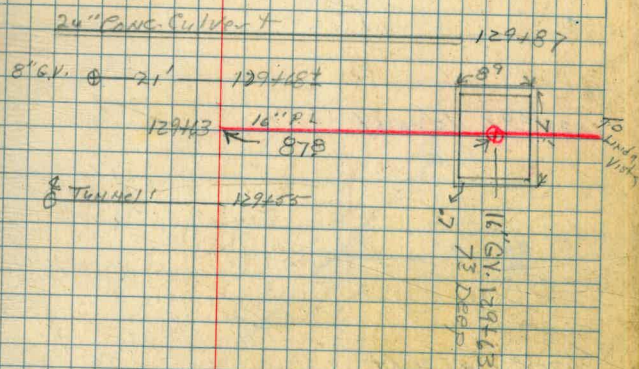 24" Conc. Culvert 129+87
8" G.V. 21' 129+68±
8⁹
129+63 16" P.L.
878
To Linda Vista
Tunnel 129+55
7"
16" G.V. 129+63
7³ Deep